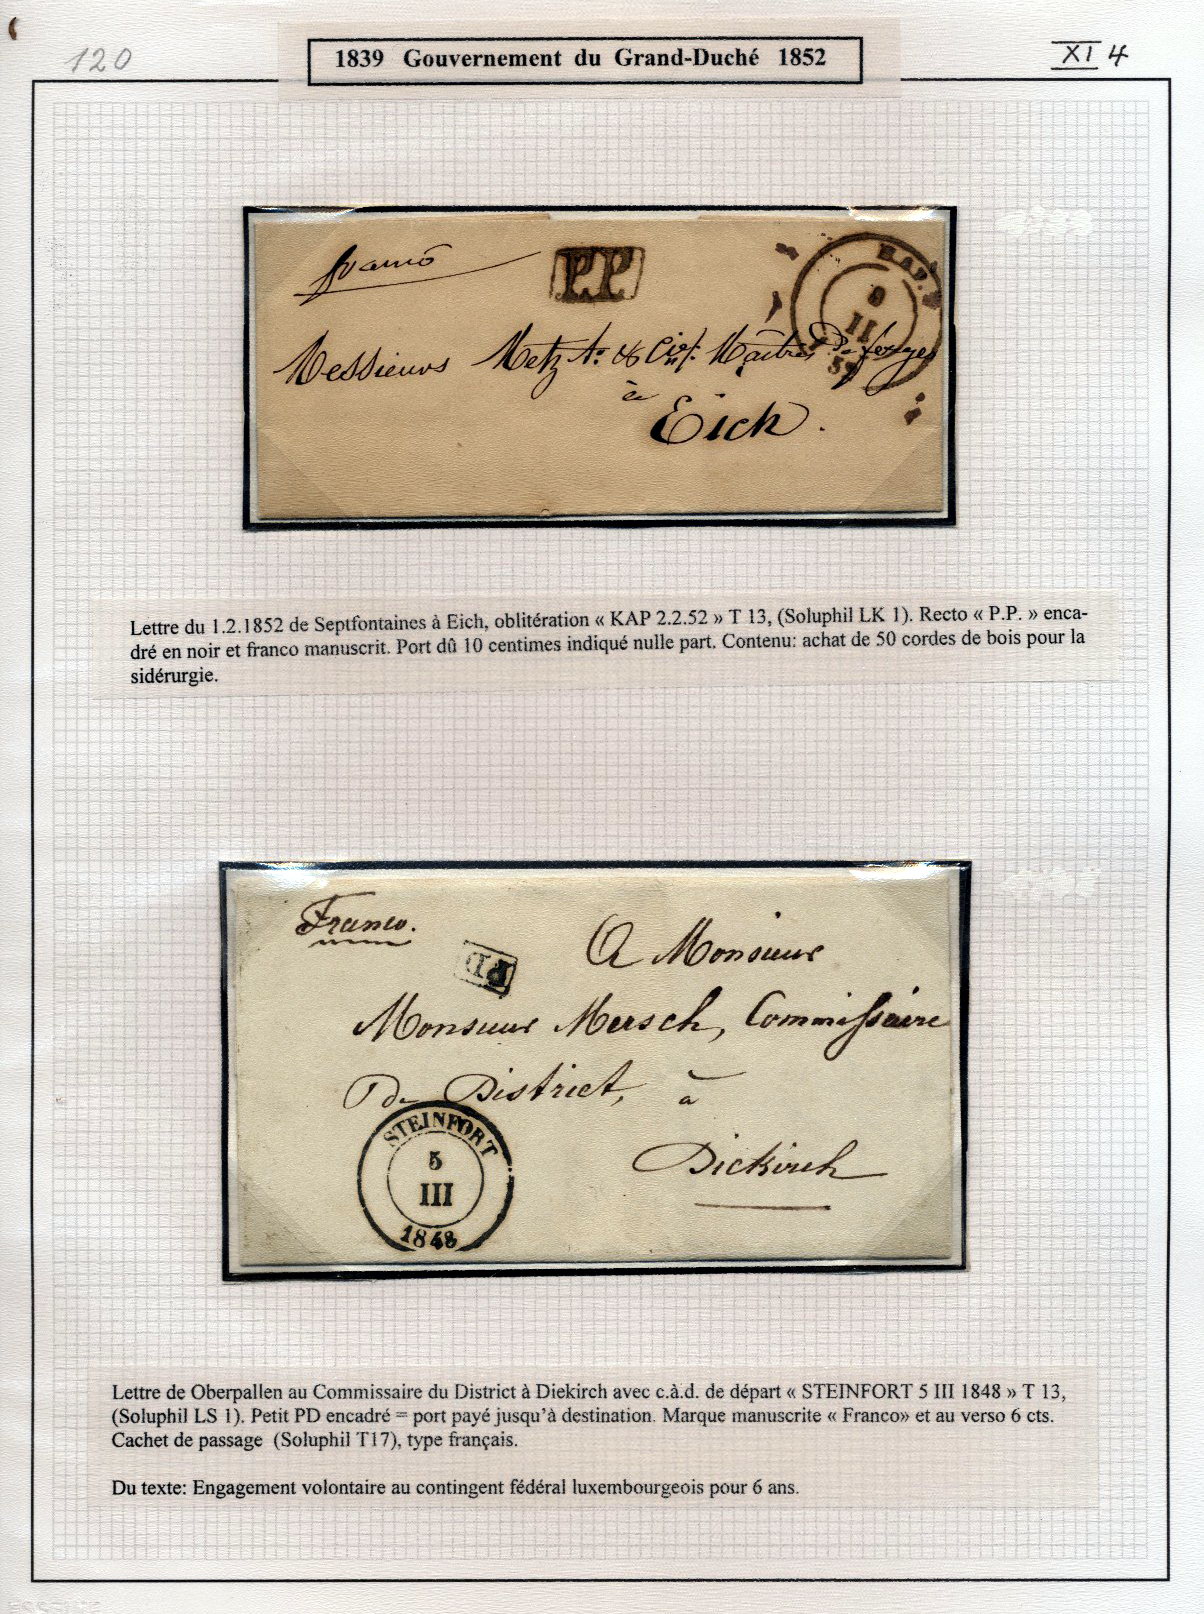 120
1839 Gouvernement du Grand-Duché 1852
XI 4
franco
P.P.
KAP.
II
52
Messieurs Metz Maitres de forges
à
Eich.
Lettre du 1.2.1852 de Septfontaines à Eich, oblitération « KAP 2.2.52 » T 13, (Soluphil LK 1). Recto « P.P. » enca-
dré en noir et franco manuscrit. Port dû 10 centimes indiqué nulle part. Contenu: achat de 50 cordes de bois pour la
sidérurgie.
Franco.
PD
A Monsieur
Monsieur Mersch, Commissaire
De District, à
Diekirch
STEINFORT
5
III
1848
Lettre de Oberpallen au Commissaire du District à Diekirch avec c.à.d. de départ « STEINFORT 5 III 1848 » T 13,
(Soluphil LS 1). Petit PD encadré = port payé jusqu'à destination. Marque manuscrite « Franco» et au verso 6 cts.
Cachet de passage (Soluphil T17), type français.
Du texte: Engagement volontaire au contingent fédéral luxembourgeois pour 6 ans.